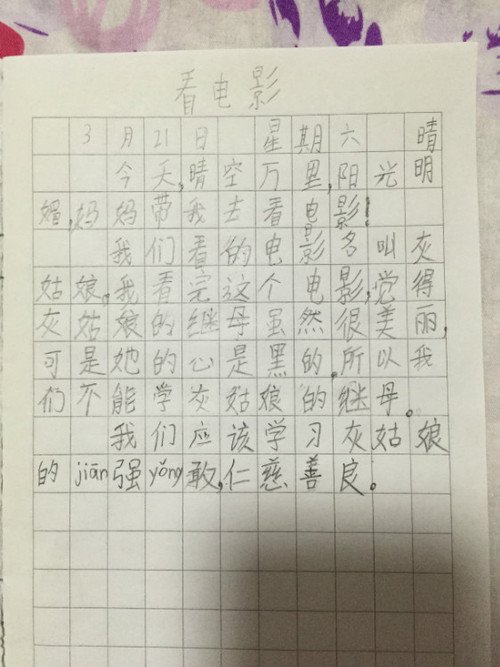 看电影
3月21日 星期六 晴
今天,晴空万里,阳光明
媚,妈妈带我去看电影!
我们看的电影名叫灰
姑娘。我看完这个电影,觉得
灰姑娘的继母虽然很美丽,
可是她的心是黑的,所以我
们不能学灰姑娘的继母。
我们应该学习灰姑娘
的jiān强yǒng敢,仁慈善良。